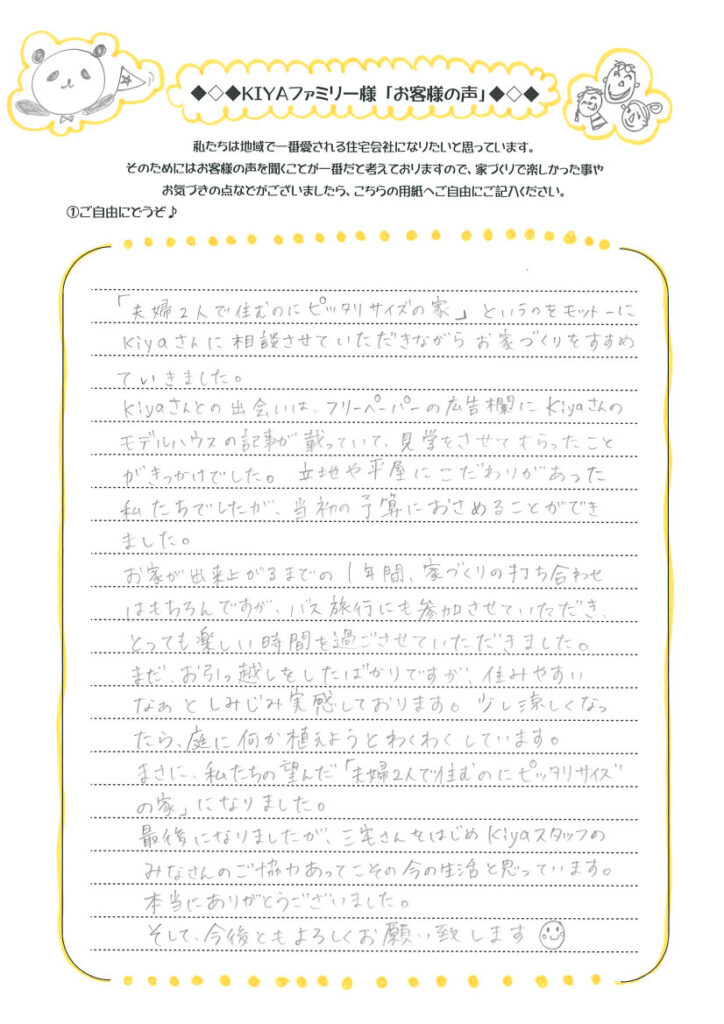 ◆◇◆KIYAファミリー様「お客様の声」◆◇◆
私たちは地域で一番愛される住宅会社になりたいと思っています。
そのためにはお客様の声を聞くことが一番だと考えておりますので、家づくりで楽しかった事や
お気づきの点などがございましたら、こちらの用紙へご自由にご記入ください。
①ご自由にどうぞ♪
「夫婦2人で住むのにピッタリサイズの家」というのをモットーに
Kiyaさんに相談させていただきながらお家づくりをすすめ
ていきました。
Kiyaさんとの出会いは、フリーペーパーの広告欄にKiyaさんの
モデルハウスの記事が載っていて、見学をさせてもらったこと
がきっかけでした。立地や平屋にこだわりがあった
私たちでしたが、当初の予算におさめることができ
ました。
お家が出来上がるまでの1年間、家づくりの打ち合わせ
はもちろんですが、バス旅行にも参加させていただき、
とっても楽しい時間を過ごさせていただきました。
まだ、お引っ越しをしたばかりですが、住みやすい
なぁとしみじみ実感しております。少し涼しくなっ
たら、庭に何か植えようとわくわくしています。
まさに、私たちの望んだ「夫婦2人で住むのにピッタリサイズ
の家」になりました。
最後になりましたが、三宅さんをはじめKiyaスタッフの
みなさんのご協力あってこその今の生活と思っています。
本当にありがとうございました。
そして、今後ともよろしくお願い致します